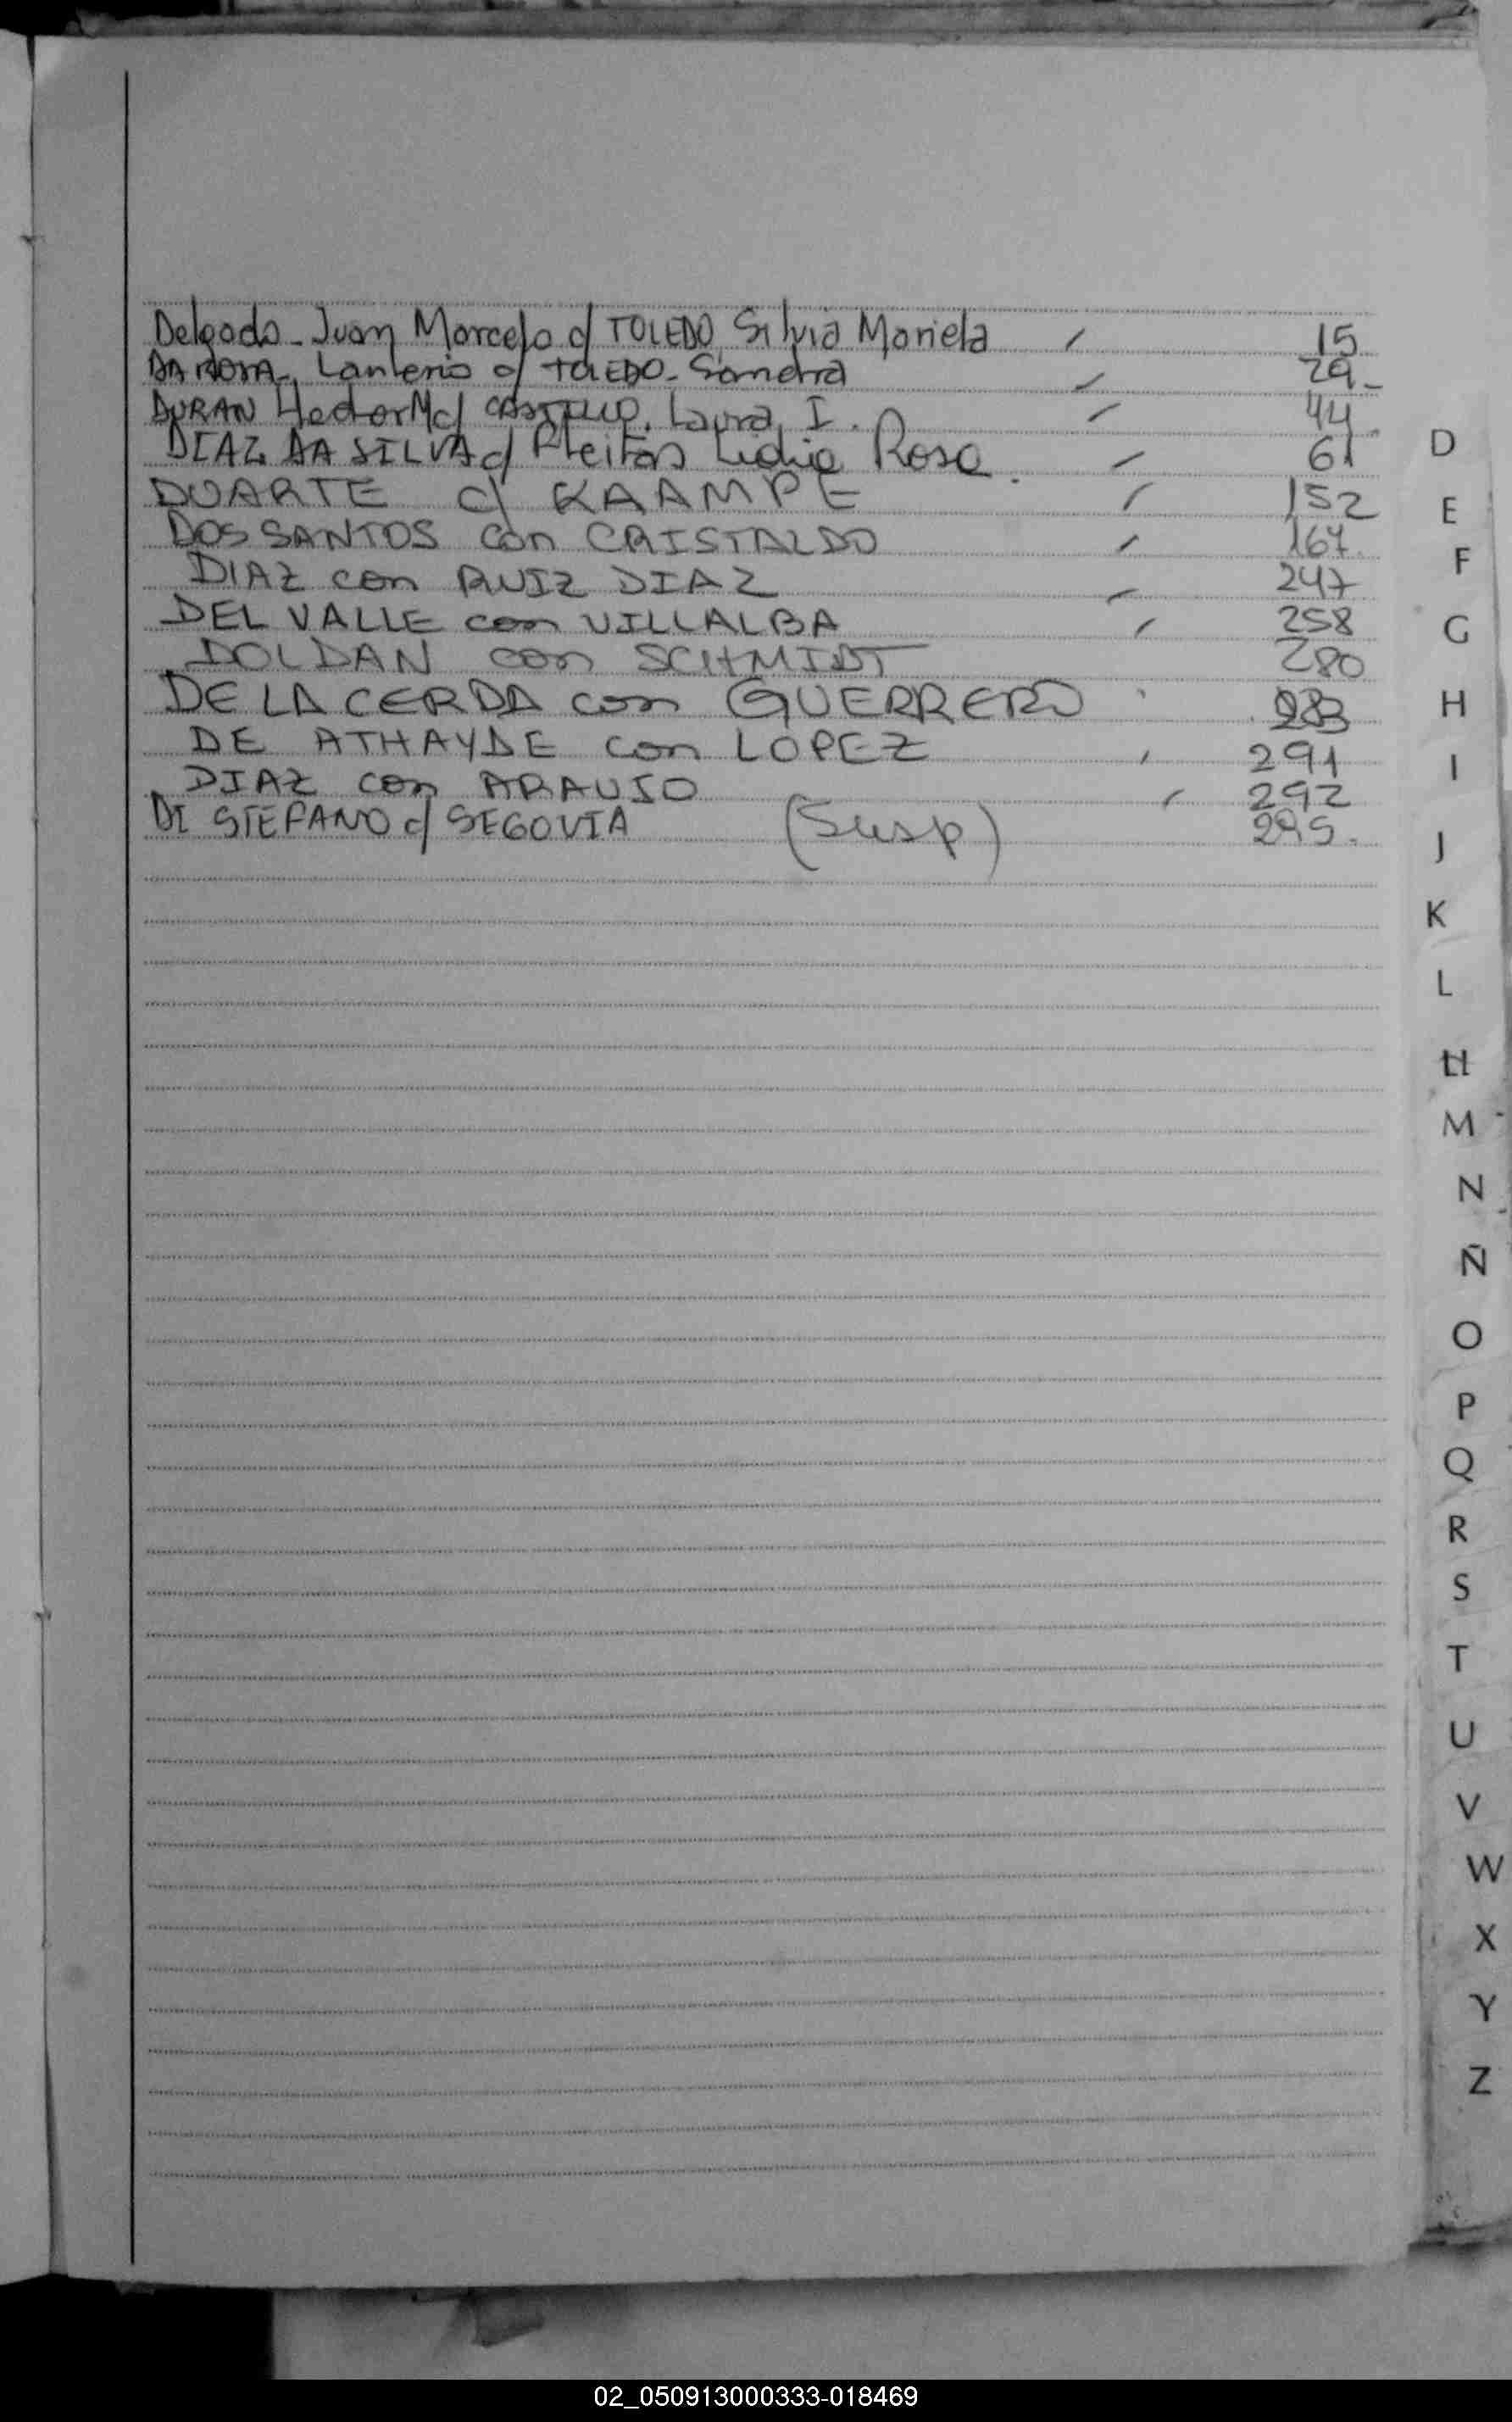 Delgado - Juan Marcelo c/ TOLEDO, Silvia Mariela / 15
Lanterio c/ TOLEDO - Sandra / 29 -
DURAN Hector M c/ CASTILLO. Laura I. / 44
DIAZ DA SILVA c/ Fleitas Lidia Rosa. / 61
DUARTE c/ KAAMPE / 152
DOS SANTOS con CRISTALDO / 167
DIAZ con RUIZ DIAZ / 247
DEL VALLE con VILLALBA / 258
DOLDAN con SCHMIDT 280
DE LA CERDA con GUERRERO ' 283
DE ATHAYDE con LOPEZ ' 291
DIAZ con ARAUJO / 292
DI STEFANO c/ SEGOVIA (Susp) 295.
D
E
F
G
H
I
J
K
L
Ll
M
N
Ñ
O
P
Q
R
S
T
U
V
W
X
Y
Z
02_050913000333-018469